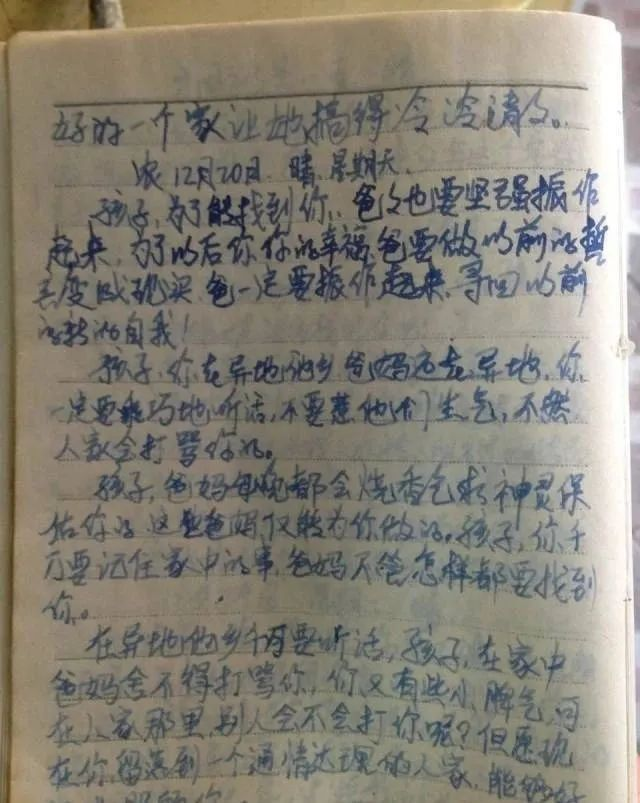 好的一个家让她搞得冷冷清々。
农12月20日 晴 星期天.
孩子,为了能找到你,爸々也要坚强振作
起来,为了以后你你的幸福,爸要做以前的
变成现实.爸一定要振作起来,寻回以前
的自我!
孩子,你在异地他乡,爸妈远在异地,你
一定要乖巧地听话,不要惹他们生气,不然
人家会打骂你的。
孩子,爸妈每晚都会烧香乞求神灵保
佑你的,这些爸妈仅能为你做的,孩子,你千
万要记住家中的事,爸妈不管怎样都要找到
你。
在异地他乡千万要听话,孩子,在家中
爸妈舍不得打骂你,你又有些小脾气,可
在人家那里,别人会不会打你呢?但愿现
在你落到一个通情达理的人家,能够好